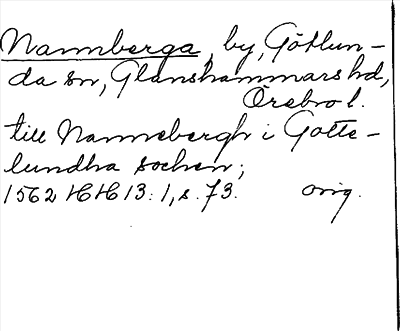 Nannberga, by, Götlun-
da sn, Glanshammars hd,
Örebro l.
till Nannebergh i Götte-
lundha sochen;
1562 HH 13:1, s. 73. orig.